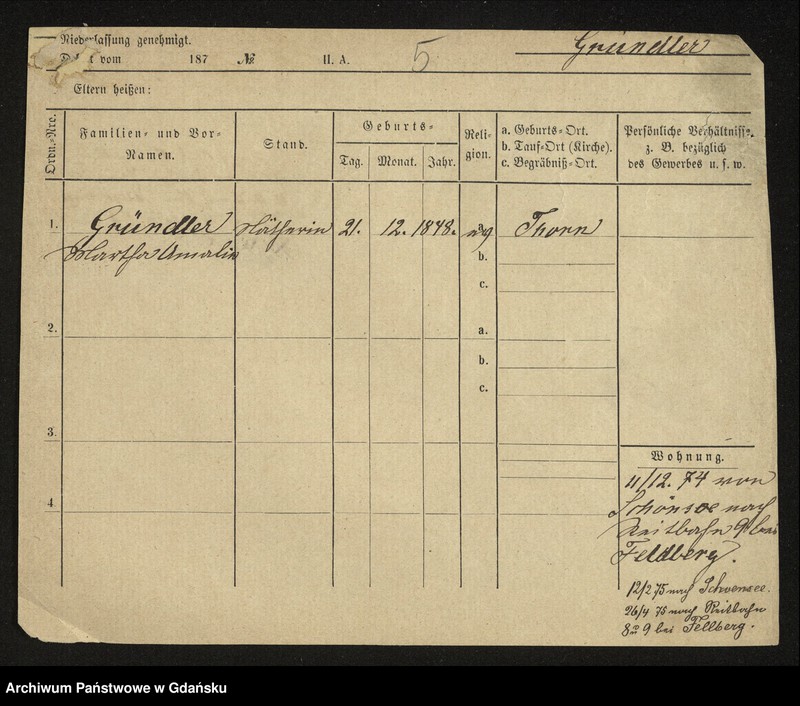 Niederlassung genehmigt.
vom 187 № II. A. 5 Gründler
Eltern heißen:
Ordn.-Nro.
Familien- und Vor-Namen.
Stand.
Geburts-
Tag. Monat. Jahr.
Religion.
a. Geburts-Ort.
b. Tauf-Ort (Kirche).
c. Begräbniß-Ort.
Persönliche Verhältniss.
z. B. bezüglich
des Gewerbes u. s. w.
1. Gründler Nätherin 21. 12. 1848. ev Thorn
Martha Amalie
b.
c.
2. a.
b.
c.
3.
4.
Wohnung.
11/12. 74 von
Schönsee nach
Reitbahn 9 bei
Feldberg.
12/2 75 nach Schoensee.
26/4 75 nach Reitbahn
8 u 9 bei Fellberg.
Archiwum Państwowe w Gdańsku